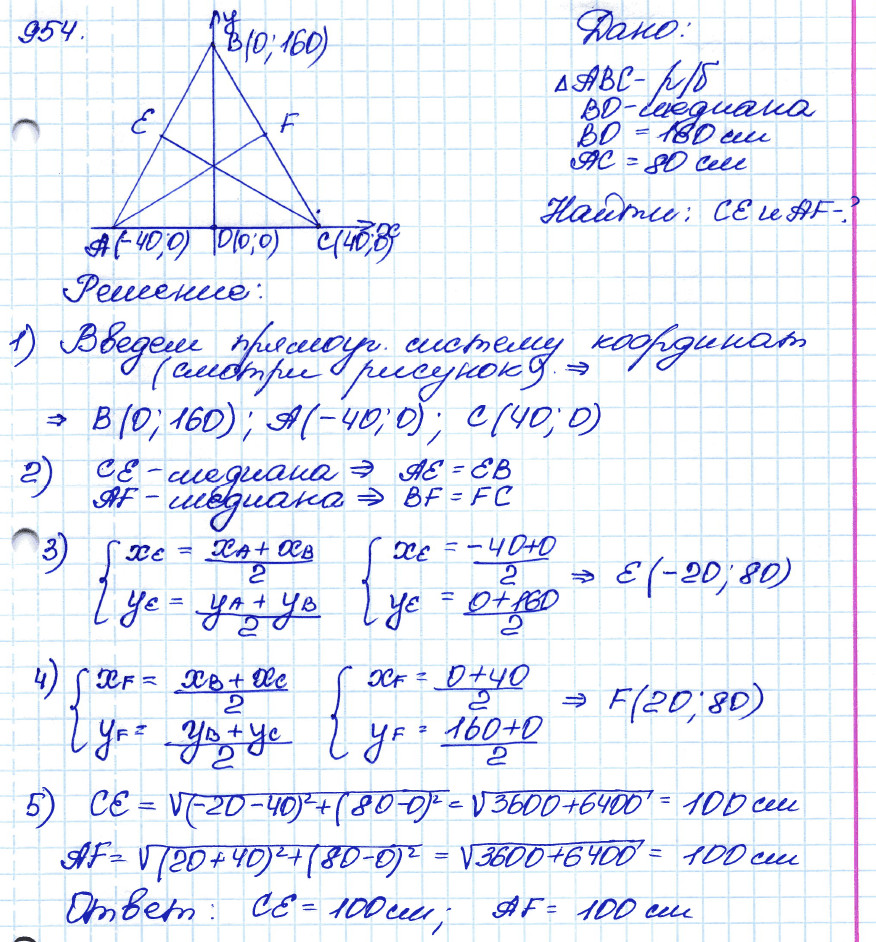 954.
y
B(0; 160)
E
F
A(-40; 0)
O(0; 0)
C(40; 0)
x
Дано:
△ABC - р/б
BO - медиана
BO = 160 см
AC = 80 см
Найти: CE и AF - ?
Решение:
1) Введем прямоуг. систему координат
(смотри рисунок). ⇒
⇒ B(0; 160); A(-40; 0); C(40; 0)
2) CE - медиана ⇒ AE = EB
AF - медиана ⇒ BF = FC
3) { xE = (xA + xB)/2 { xE = (-40+0)/2 ⇒ E(-20; 80)
yE = (yA + yB)/2 yE = (0+160)/2
4) { xF = (xB + xC)/2 { xF = (0+40)/2 ⇒ F(20; 80)
yF = (yB + yC)/2 yF = (160+0)/2
5) CE = √((-20-40)²+(80-0)²) = √(3600+6400) = 100 см
AF = √((20+40)²+(80-0)²) = √(3600+6400) = 100 см
Ответ: CE = 100 см; AF = 100 см